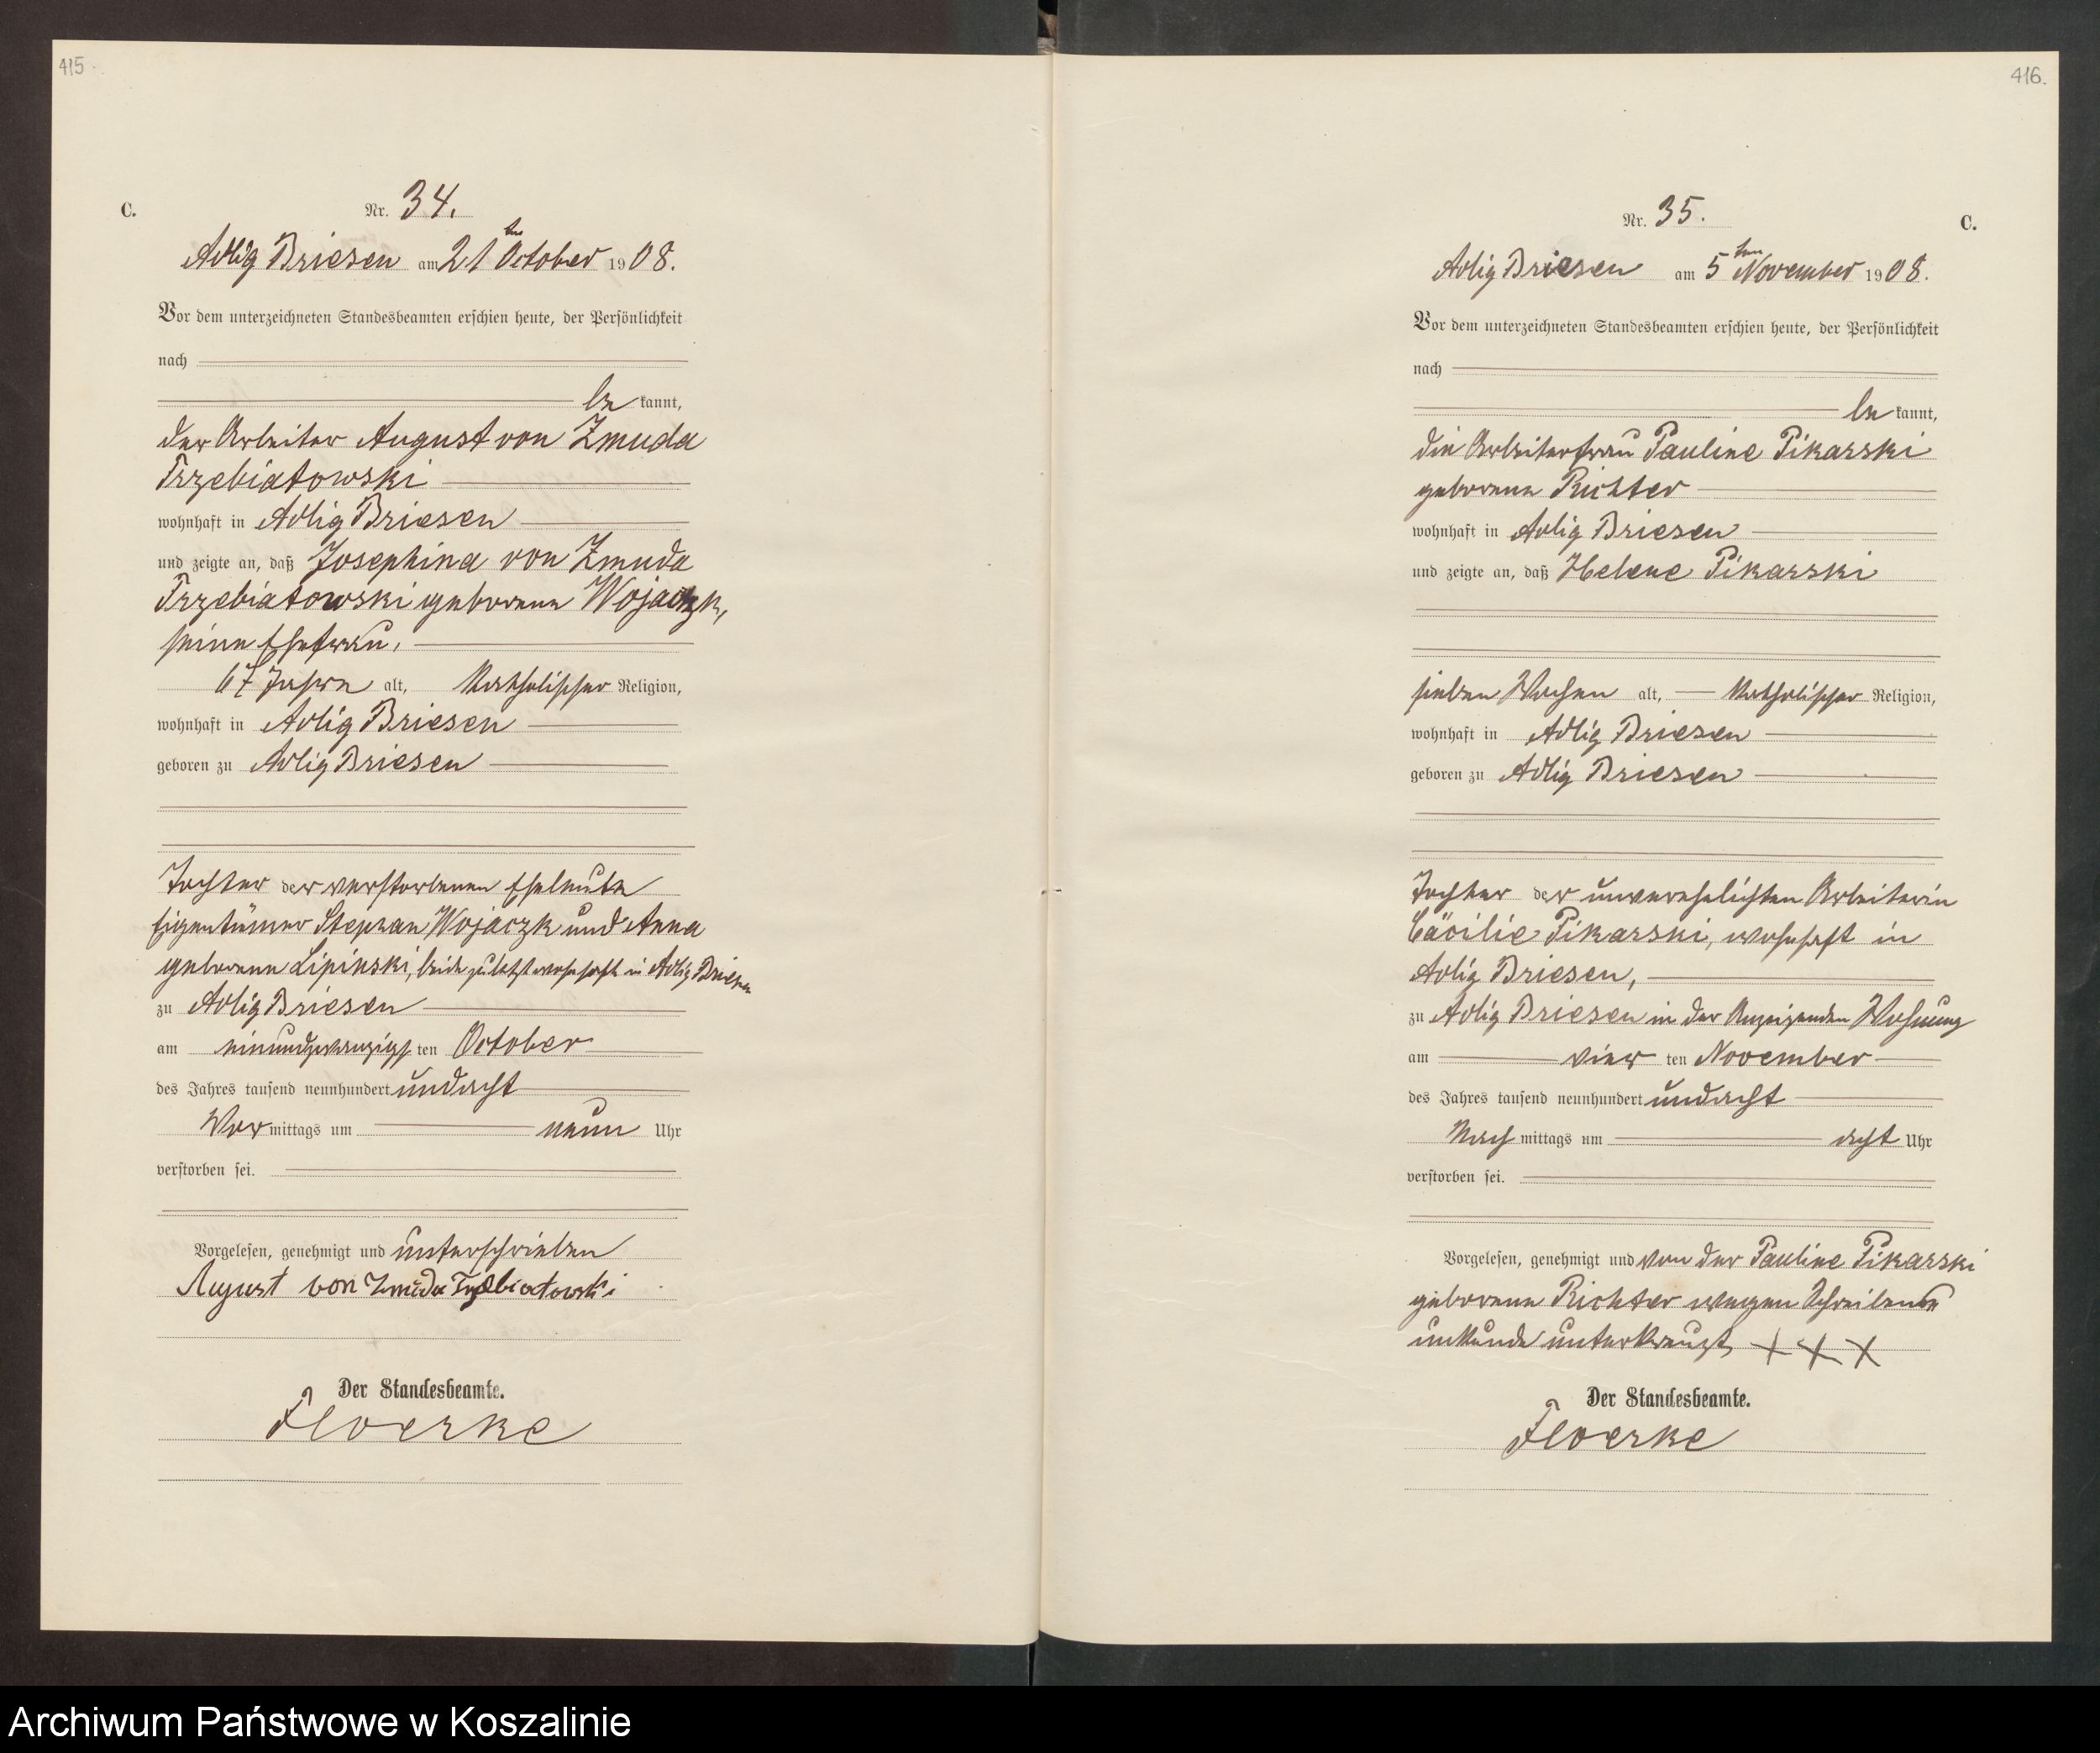 415
C.
Nr. 34.
Adlig Briesen am 21ten October 1908.
Vor dem unterzeichneten Standesbeamten erschien heute, der Persönlichkeit
nach
be kannt,
der Arbeiter August von Zmuda
Trzebiatowski
wohnhaft in Adlig Briesen
und zeigte an, daß Josephina von Zmuda
Trzebiatowski geborene Wojaczk,
seine Ehefrau,
67 Jahre alt, Katholischer Religion,
wohnhaft in Adlig Briesen
geboren zu Adlig Briesen
Tochter der verstorbenen Eheleute
Eigentümer Stephan Wojaczk und Anna
geborene Lipinski, beide zuletzt wohnhaft in Adlig Briesen
zu Adlig Briesen
am einundzwanzigsten October
des Jahres tausend neunhundert undacht
Vormittags um neun Uhr
verstorben sei.
Vorgelesen, genehmigt und unterschrieben
August von Zmuda Trzebiatowski
Der Standesbeamte.
Floerke
416.
Nr. 35.
C.
Adlig Briesen am 5ten November 1908.
Vor dem unterzeichneten Standesbeamten erschien heute, der Persönlichkeit
nach
be kannt,
die Arbeiterfrau Pauline Pikarski
geborene Richter
wohnhaft in Adlig Briesen
und zeigte an, daß Helene Pikarski
sieben Wochen alt, Katholischer Religion,
wohnhaft in Adlig Briesen
geboren zu Adlig Briesen
Tochter der unverehelichten Arbeiterin
Cäcilie Pikarski, wohnhaft in
Adlig Briesen,
zu Adlig Briesen in der Anzeigenden Wohnung
am vier ten November
des Jahres tausend neunhundert undacht
Nach mittags um acht Uhr
verstorben sei.
Vorgelesen, genehmigt und von der Pauline Pikarski
geborene Richter wegen Schreibens
unkunde unterkreuzt, XXX
Der Standesbeamte.
Floerke
Archiwum Państwowe w Koszalinie